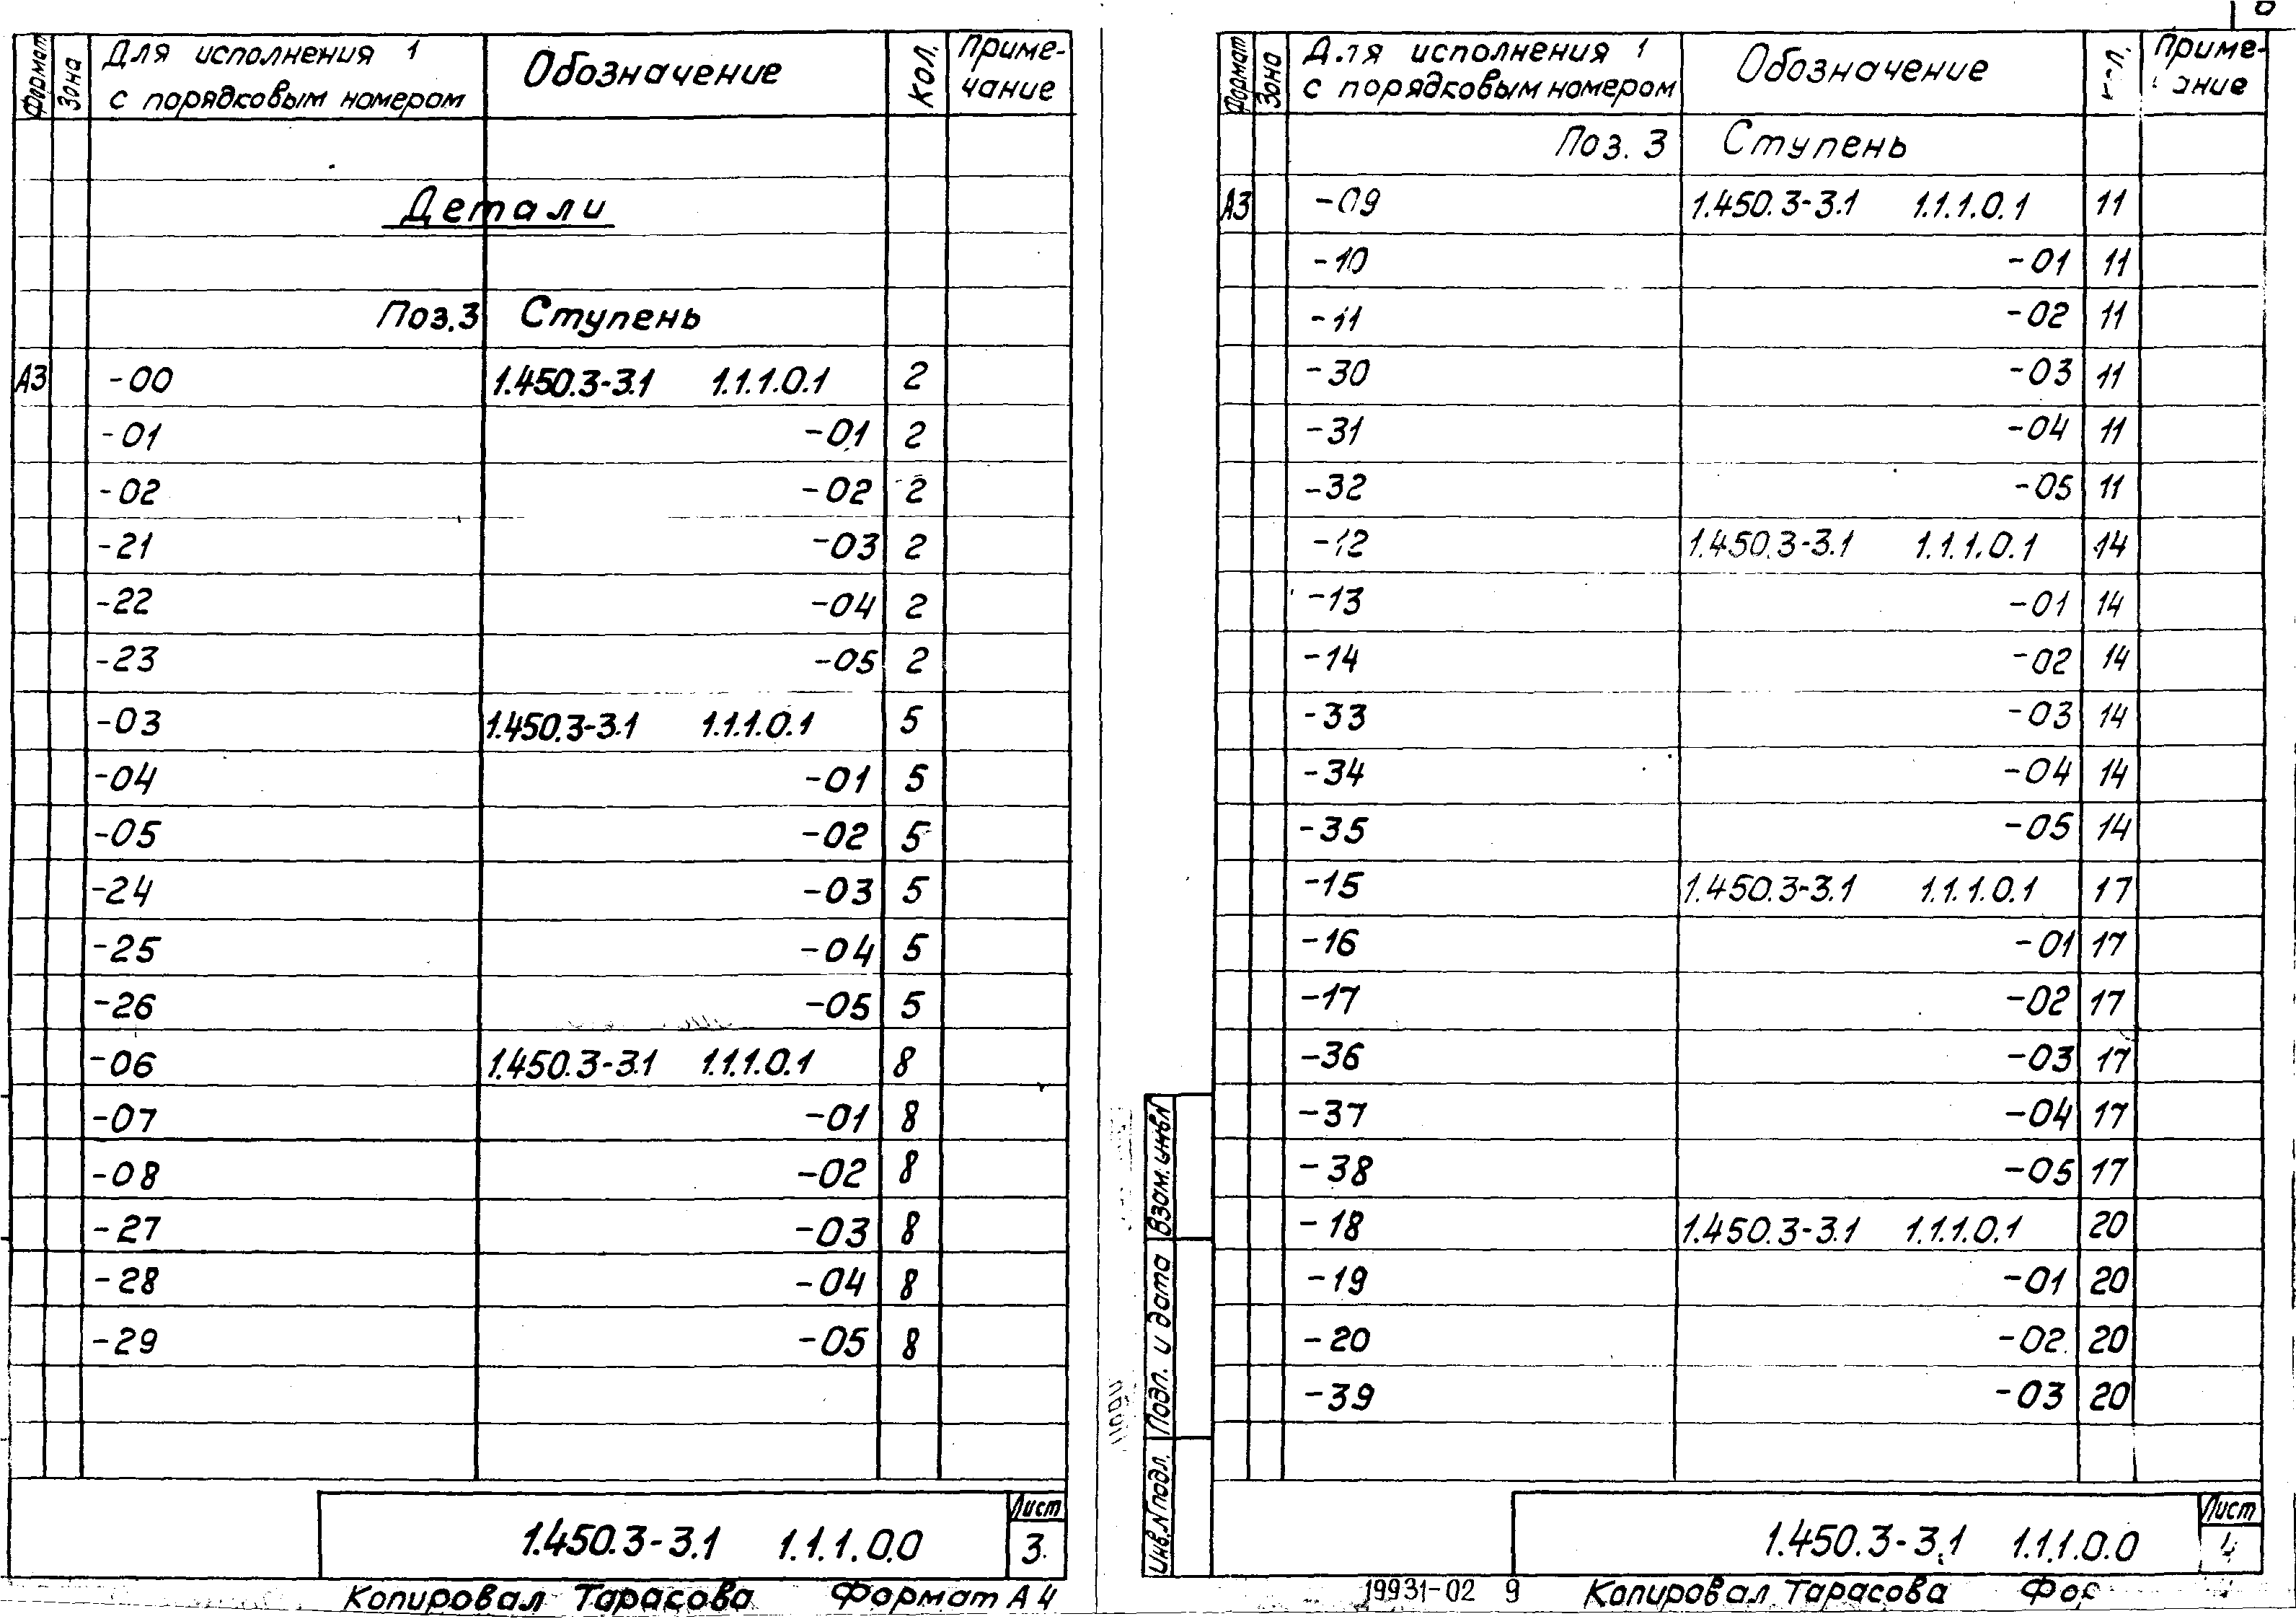 Формат Зона Для исполнения 1 с порядковым номером Обозначение Кол. Приме-чание
Детали
Поз.3 Ступень
А3 -00 1.450.3-3.1 1.1.1.0.1 2
-01 -01 2
-02 -02 2
-21 -03 2
-22 -04 2
-23 -05 2
-03 1.450.3-3.1 1.1.1.0.1 5
-04 -01 5
-05 -02 5
-24 -03 5
-25 -04 5
-26 -05 5
-06 1.450.3-3.1 1.1.1.0.1 8
-07 -01 8
-08 -02 8
-27 -03 8
-28 -04 8
-29 -05 8
1.450.3-3.1 1.1.1.0.0 Лист 3
Копировал Тарасова Формат А4
Формат Зона Для исполнения 1 с порядковым номером Обозначение Приме-
Поз. 3 Ступень
А3 -09 1.450.3-3.1 1.1.1.0.1 11
-10 -01 11
-11 -02 11
-30 -03 11
-31 -04 11
-32 -05 11
-12 1.450.3-3.1 1.1.1.0.1 14
-13 -01 14
-14 -02 14
-33 -03 14
-34 -04 14
-35 -05 14
-15 1.450.3-3.1 1.1.1.0.1 17
-16 -01 17
-17 -02 17
-36 -03 17
-37 -04 17
-38 -05 17
-18 1.450.3-3.1 1.1.1.0.1 20
-19 -01 20
-20 -02 20
-39 -03 20
Взам. инв.N
Подп. и дата
Инв.N подл.
1.450.3-3.1 1.1.1.0.0 Лист 4
19931-02 9 Копировал Тарасова